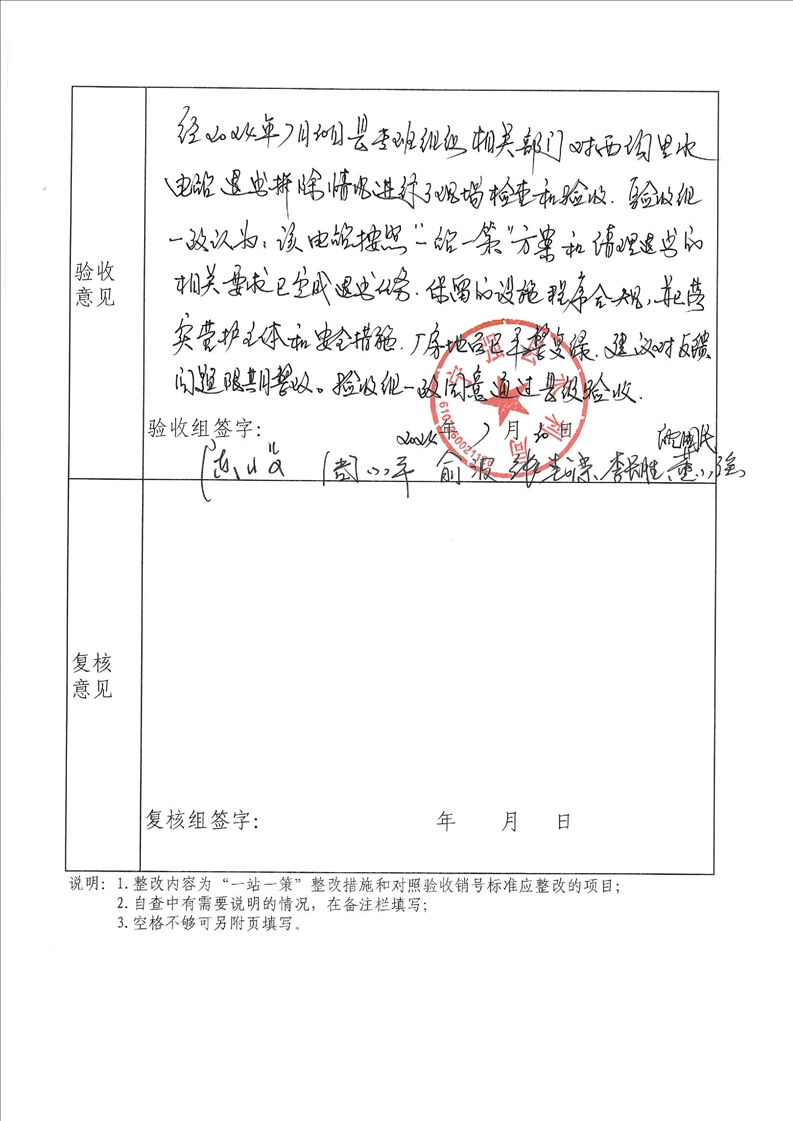 验收
意见
经2024年7月20日县专班组织相关部门对西沟里水
电站退出拆除情况进行了现场检查和验收.验收组
一致认为:该电站按照"一站一策"方案和清理退出的
相关要求已完成退出任务.保留的设施程序合规,并已落
实管护主体和安全措施.厂房地台已平整复绿.建议对反馈
问题限期整改。验收组一致同意通过县级验收.
宁强县水利局
验收组签字:
2024年 7月 20日
周小平 俞波 李长胜 董小强
复核
意见
复核组签字: 年 月 日
说明: 1.整改内容为“一站一策”整改措施和对照验收销号标准应整改的项目;
2.自查中有需要说明的情况,在备注栏填写;
3.空格不够可另附页填写。